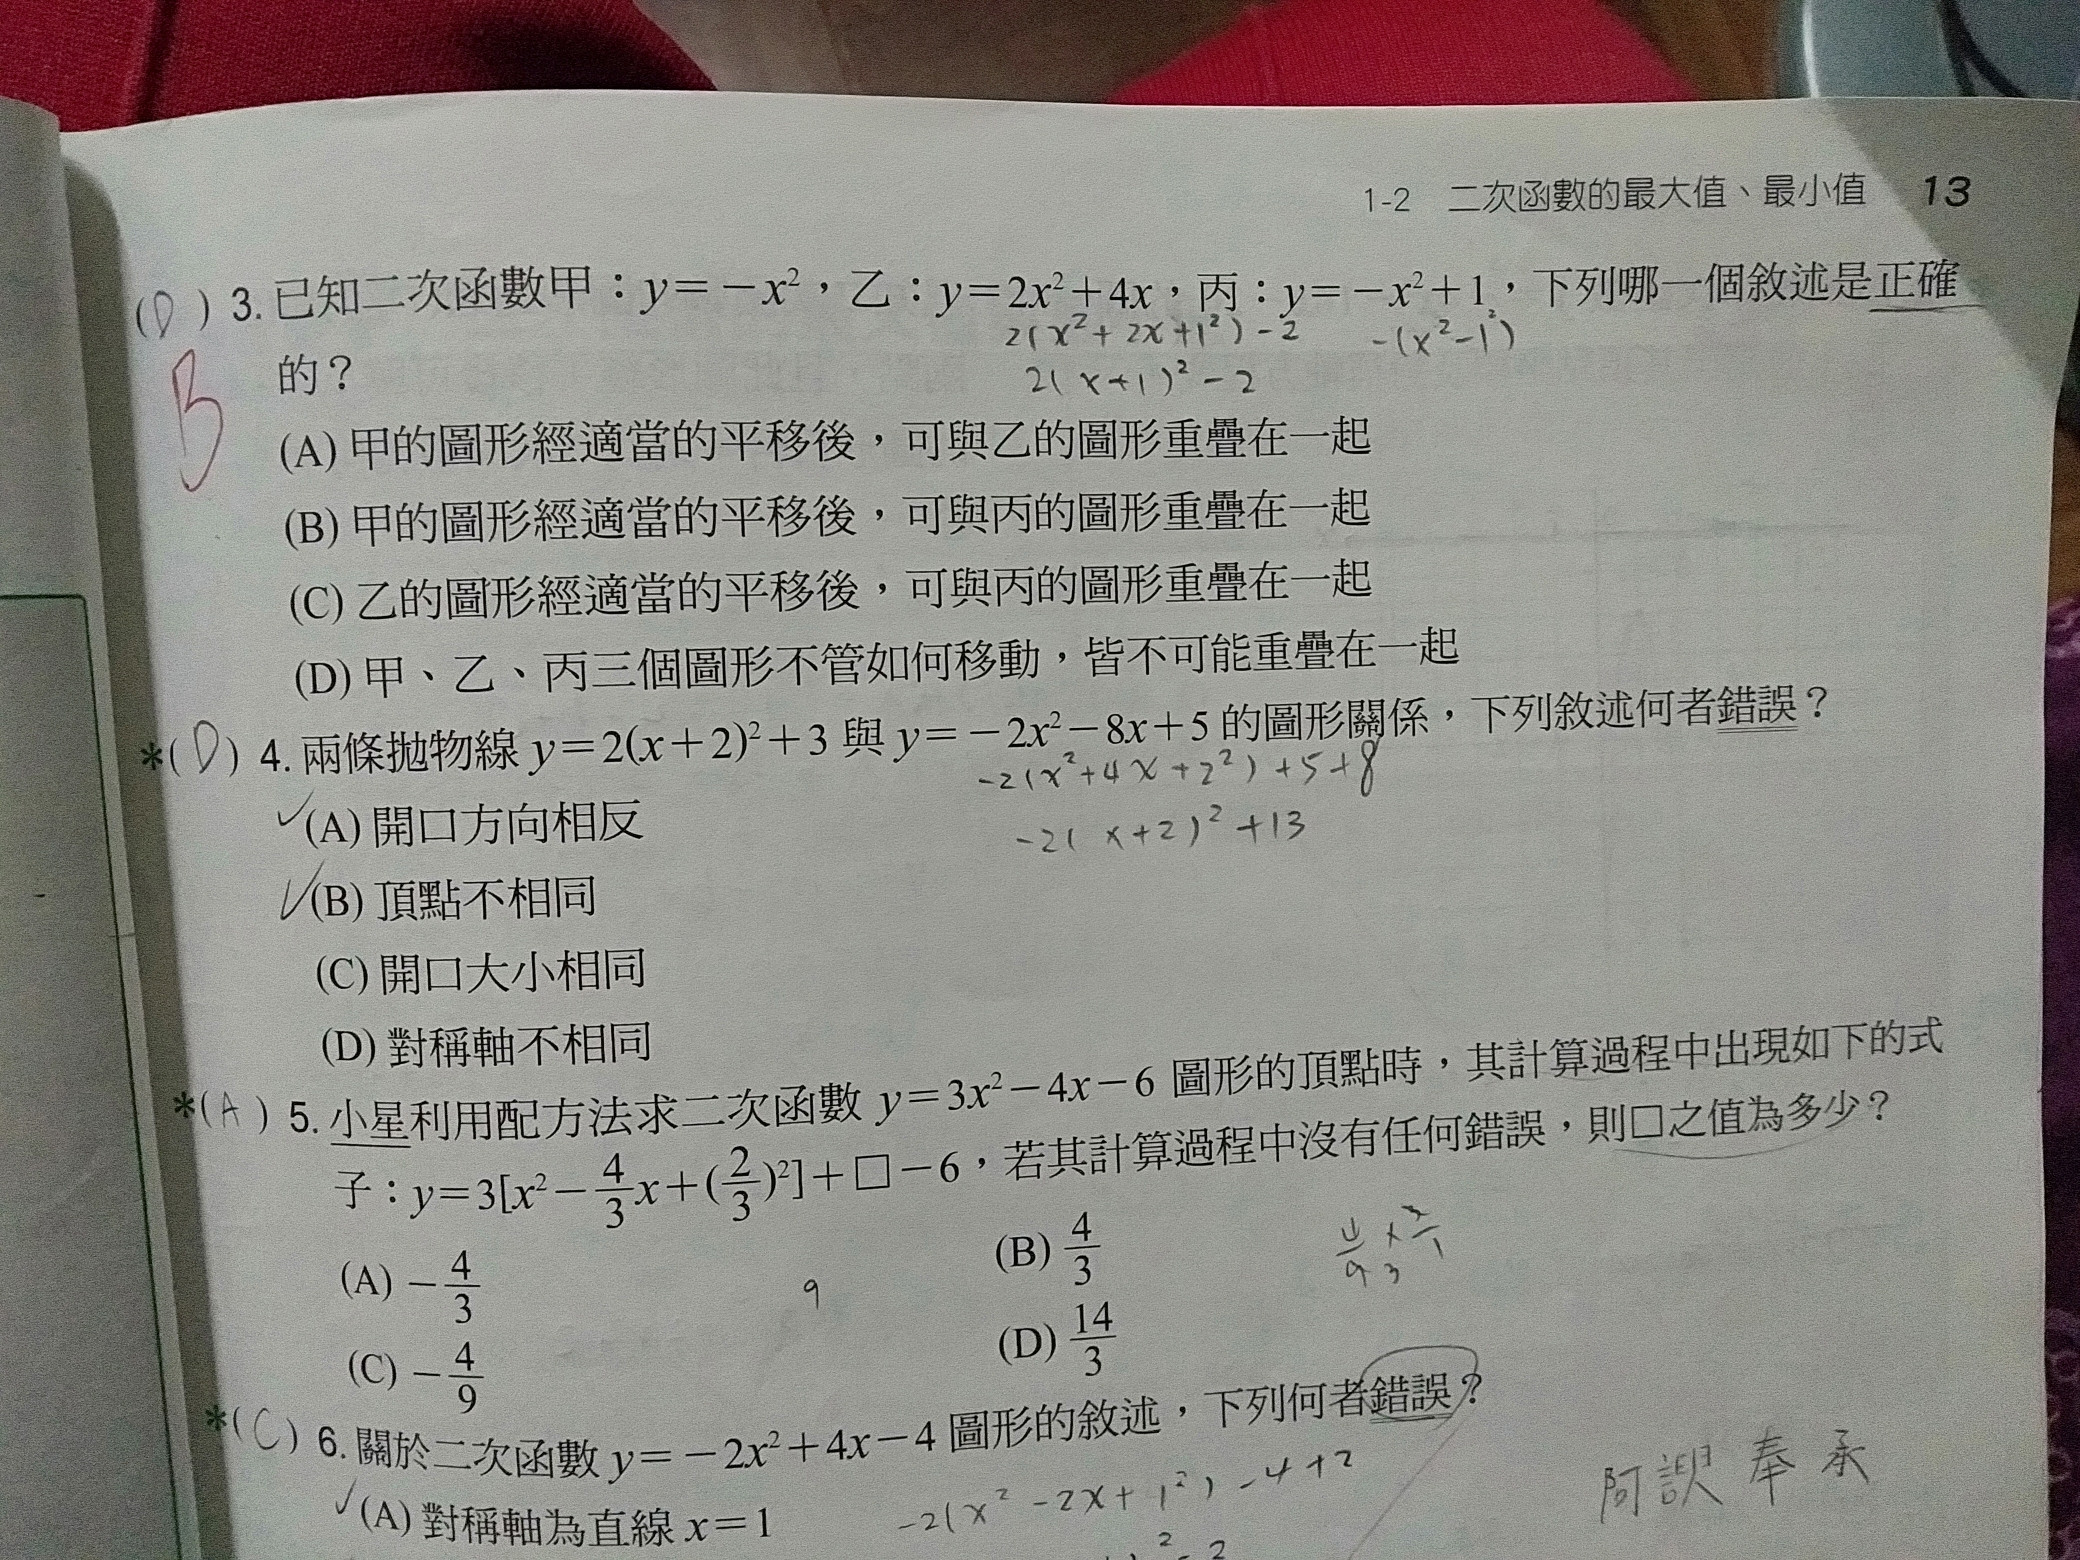 1-2 二次函數的最大值、最小值 13
(D) 3. 已知二次函數甲：y＝－x²，乙：y＝2x²＋4x，丙：y＝－x²＋1，下列哪一個敘述是正確
2(x²+2x+1²)-2 -(x²-1²)
B 的？
2(x+1)²-2
(A) 甲的圖形經適當的平移後，可與乙的圖形重疊在一起
(B) 甲的圖形經適當的平移後，可與丙的圖形重疊在一起
(C) 乙的圖形經適當的平移後，可與丙的圖形重疊在一起
(D) 甲、乙、丙三個圖形不管如何移動，皆不可能重疊在一起
*(D) 4. 兩條拋物線 y＝2(x＋2)²＋3 與 y＝－2x²－8x＋5 的圖形關係，下列敘述何者錯誤？
-2(x²+4x+2²)+5+8
✓(A) 開口方向相反
-2(x+2)²+13
✓(B) 頂點不相同
(C) 開口大小相同
(D) 對稱軸不相同
*(A) 5. 小星利用配方法求二次函數 y＝3x²－4x－6 圖形的頂點時，其計算過程中出現如下的式
子：y＝3[x²－4/3x＋(2/3)²]＋□－6，若其計算過程中沒有任何錯誤，則□之值為多少？
(A) －4/3 (B) 4/3
9 4/9 × 3/1
3
(C) －4/9 (D) 14/3
*(C) 6. 關於二次函數 y＝－2x²＋4x－4 圖形的敘述，下列何者錯誤？
-2(x²-2x+1²)-4+2
阿諛奉承
✓(A) 對稱軸為直線 x＝1